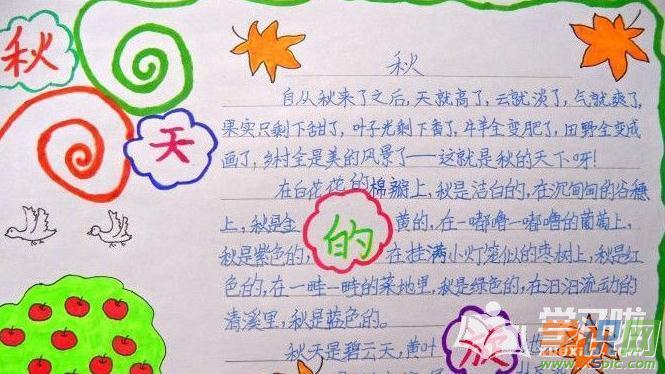 秋
天
的
秋
自从秋来了之后,天就高了,云就淡了,气就爽了,
果实只剩下甜了,叶子光剩下香了,牛羊全变肥了,田野全变成
画了,乡村全是美的风景了——这就是秋的天下呀!
在白花花的棉瓣上,秋是洁白的,在沉甸甸的谷穗
上,秋是金黄的,在一嘟噜一嘟噜的葡萄上,
秋是紫色的,在挂满小灯笼似的枣树上,秋是红
色的,在一畦一畦的菜地里,秋是绿色的,在汩汩流动的
清溪里,秋是蓝色的。
秋天是碧云天,黄叶
学识网
www.xspic.com